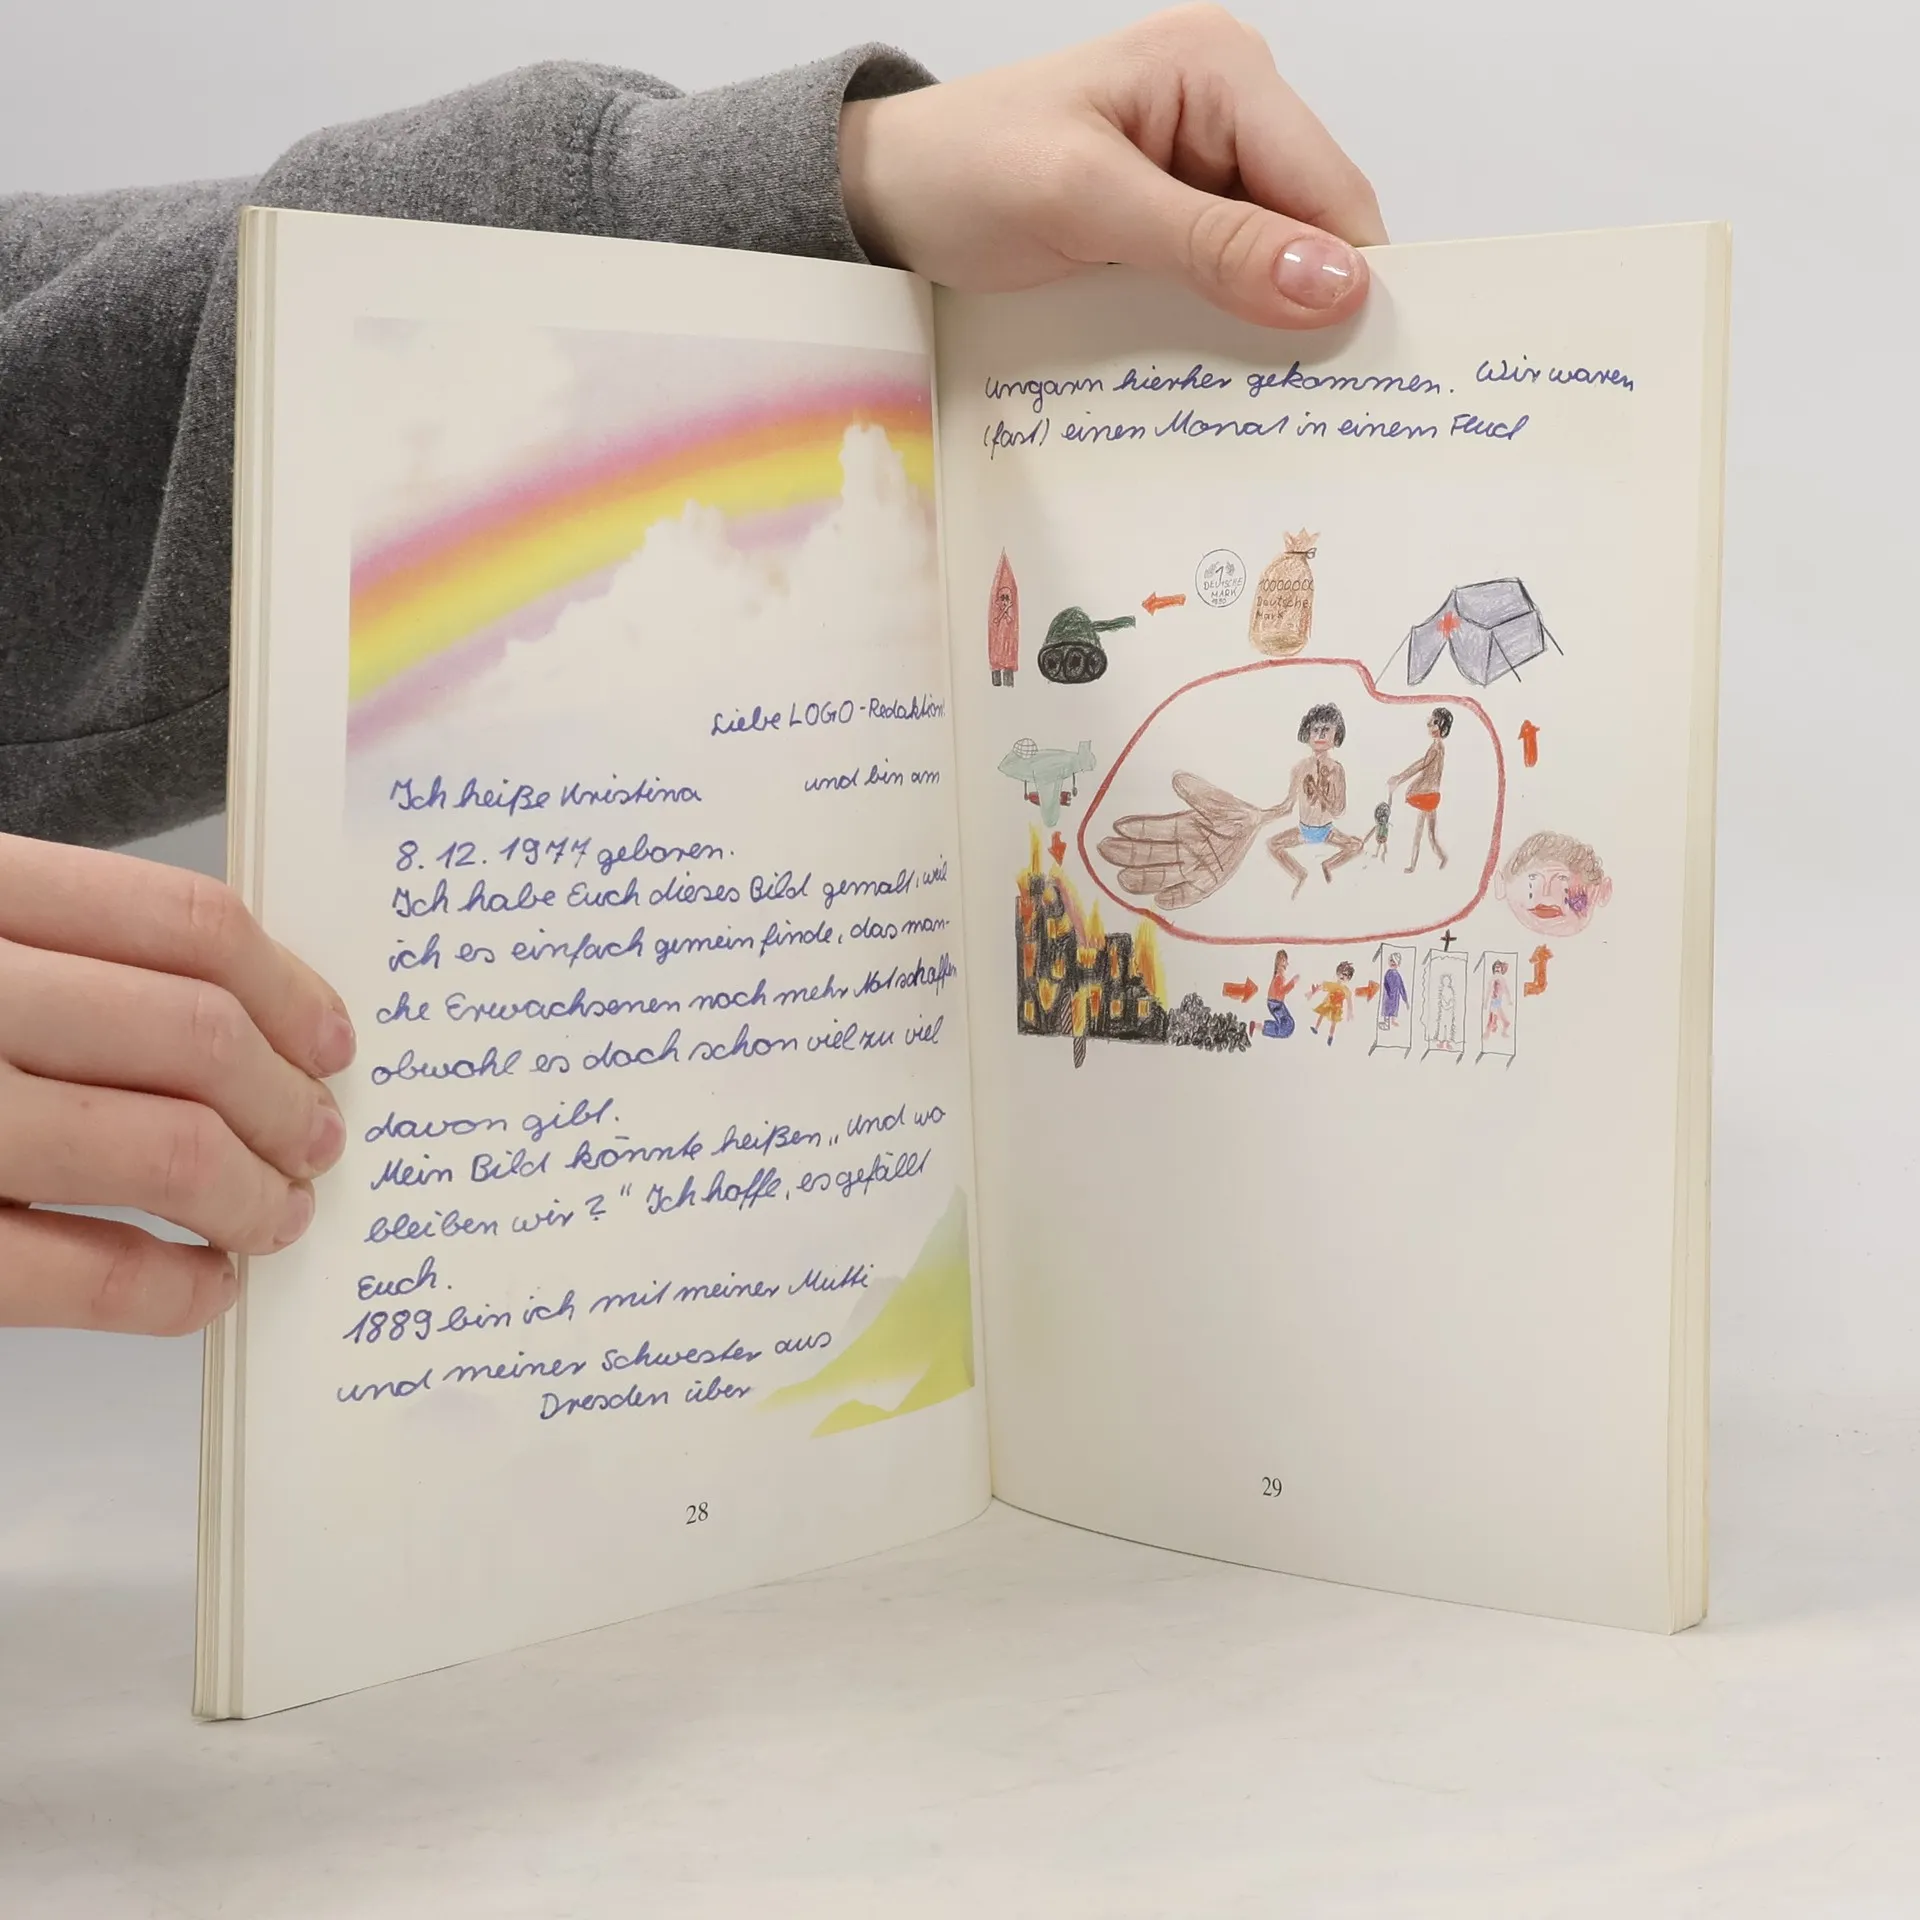 Liebe LOGO-Redaktion!
Ich heiße Kristina und bin am
8. 12. 1977 geboren.
Ich habe Euch dieses Bild gemalt, weil
ich es einfach gemein finde, das man-
che Erwachsenen noch mehr Not schaffen
obwohl es doch schon viel zu viel
davon gibt.
Mein Bild könnte heißen „Und wo
bleiben wir?“ Ich hoffe, es gefällt
Euch.
1889 bin ich mit meiner Mutti
und meiner Schwester aus
Dresden über
28
Ungarn hierher gekommen. Wir waren
(fast) einen Monat in einem
1
DEUTSCHE
MARK
1000000
Deutsche
Mark
29